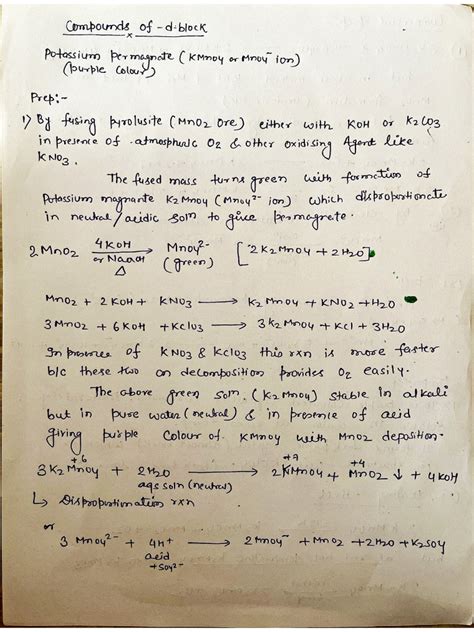 Compounds of -d-block
Potassium permagnate (KMnO4 or MnO4⁻ ion)
(purple colour)
Prep:-
1) By fusing pyrolusite (MnO2 Ore) either with KOH or K2CO3
in presence of atmospheric O2 & other oxidising Agent like
KNO3.
The fused mass turns green with formation of
Potassium magnante K2MnO4 (MnO4²⁻ ion) which disproportionate
in neutral/acidic soln to give permagrete.
2MnO2 4KOH or NaOH Δ ⟶ MnO4²⁻ (green) [2K2MnO4 + 2H2O]
MnO2 + 2KOH + KNO3 ⟶ K2MnO4 + KNO2 + H2O
3MnO2 + 6KOH + KClO3 ⟶ 3K2MnO4 + KCl + 3H2O
In presence of KNO3 & KClO3 this rxn is more faster
b/c these two on decomposition provides O2 easily.
The above green soln. (K2MnO4) stable in alkali
but in pure water (neutral) & in presence of acid
giving purple colour of KMnO4 with MnO2 deposition.
+6 +7 +4
3K2MnO4 + 2H2O ⟶ 2KMnO4 + MnO2 ↓ + 4KOH
aqs soln (neutral)
↳ Disproportionation rxn
or
3 MnO4²⁻ + 4H⁺ ⟶ 2MnO4⁻ + MnO2 + 2H2O + K2SO4
acid
+SO4²⁻